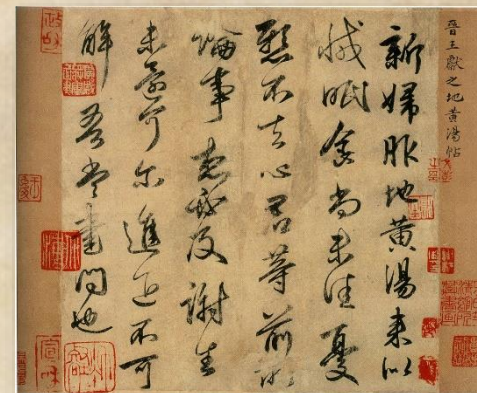 晉王獻之地黄湯帖
新婦服地黄湯来似
減眠食尚未佳憂
懸不去心君等前所
論事想必及謝生
未還可尔進退不可
解吾當書問也
宣和